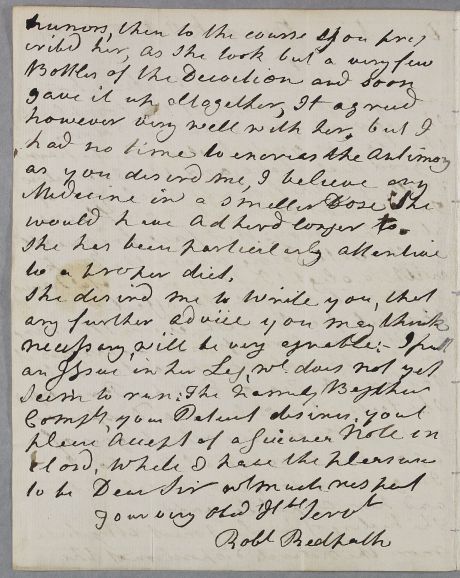 humors, then to the course you pres
cribd her, as she took but a very few
Bottles of the Decoction and soon
gave it up altogether, It agreed
however very well with her, but I
had no time to encreas the Antimony
as you desird me, I believe any
Medicine in a smeller Dose She
would have Adherd longer to.
She has been particularly attentive
to a proper diet.
She desird me to Write you, that
any further advice you may think
necessary, will be very agreable; - I put
an Issue in her Leg, wh. does not yet
seem to run: The Family
Compts, your Patient desires, youl
please Accept of a Guinea Note in
closd, While I have the pleasure
to be Dear Sir wt. much respect
Your very obed Hble Servt
Robt Redpath